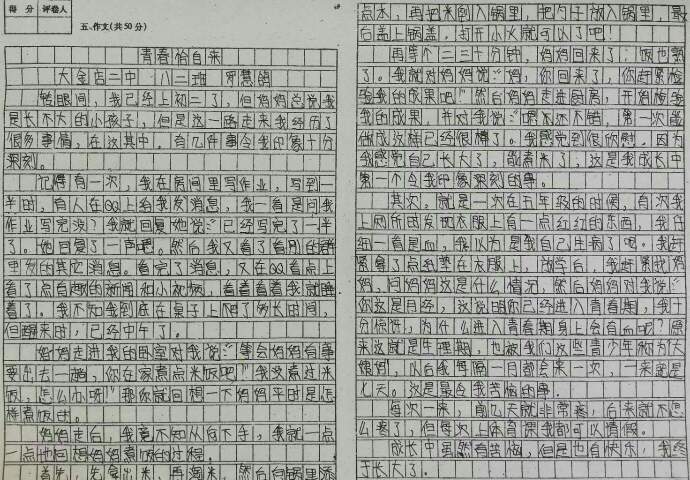 得分 评卷人
五、作文(共50分)
青春恰自来
大金店二中 八二班 罗慧鸽
转眼间，我已经上初二了，但妈妈总说我
是长不大的小孩子，但是这一路走来我经历了
很多事情，在这其中，有几件事令我印象十分
深刻。
记得有一次，我在房间里写作业，写到一
半时，有人在QQ上给我发消息，我一看是问我
作业写完没？我就回复她说：“已经写完了一半
了。她回复了一声吧。然后我又看了看别的群
里发的其它消息。看完了消息，又在QQ看点上
看了点有趣的新闻和小视频，看着看着我就睡
着了。我不知我到底在桌子上趴了多长时间，
但醒来时，已经中午了。
妈妈走进我的卧室对我说：“等会妈妈有事
要出去一趟，你在家煮点米饭吧”“我没煮过米
饭，怎么办呀”“那你就回想一下妈妈平时是怎
样煮饭的。
妈妈走后，我竟不知从何下手，我就一点
一点地回想妈妈煮饭的过程。
首先，先拿出米，再淘米，然后向锅里添
点水，再把米倒入锅里，把勺子放入锅里，最
后盖上锅盖。打开小火就可以了吧！
再等个二三十分钟，妈妈回来了；饭也熟
了。我就对妈妈说：“妈，你回来了，你赶紧检
验我的成果吧”然后妈妈走进厨房，开始检验
我的成果，并对我说：“嗯还不错，第一次能
做成这样已经很棒了。我感觉到很欣慰，因为
我感觉自己长大了，能煮米了，这是我成长中
第一个令我印象深刻的事。
其次，就是一次在五年级的时候，有次我
上厕所时发现衣服上有一点红红的东西，我仔
细一看是血，我以为是我自己生病了呢。我赶
紧拿了点纸垫在衣服上，放学后，我赶紧找妈
妈，问妈妈这是什么情况，然后妈妈对我说：“
你这是月经，这说明你已经进入青春期，我十
分惊讶，为什么进入青春期身上会有血呢？原
来这就是生理期，也被我们这些青少年称为大
姨妈，以后我每隔一月都会来一次，一来就是
七天。这是最令我苦恼的事。
每次一来，前几天就非常疼，后来就不怎
么疼了，但每次上体育课我都可以请假。
成长中虽然有苦恼，但是也有快乐，我终
于长大了。